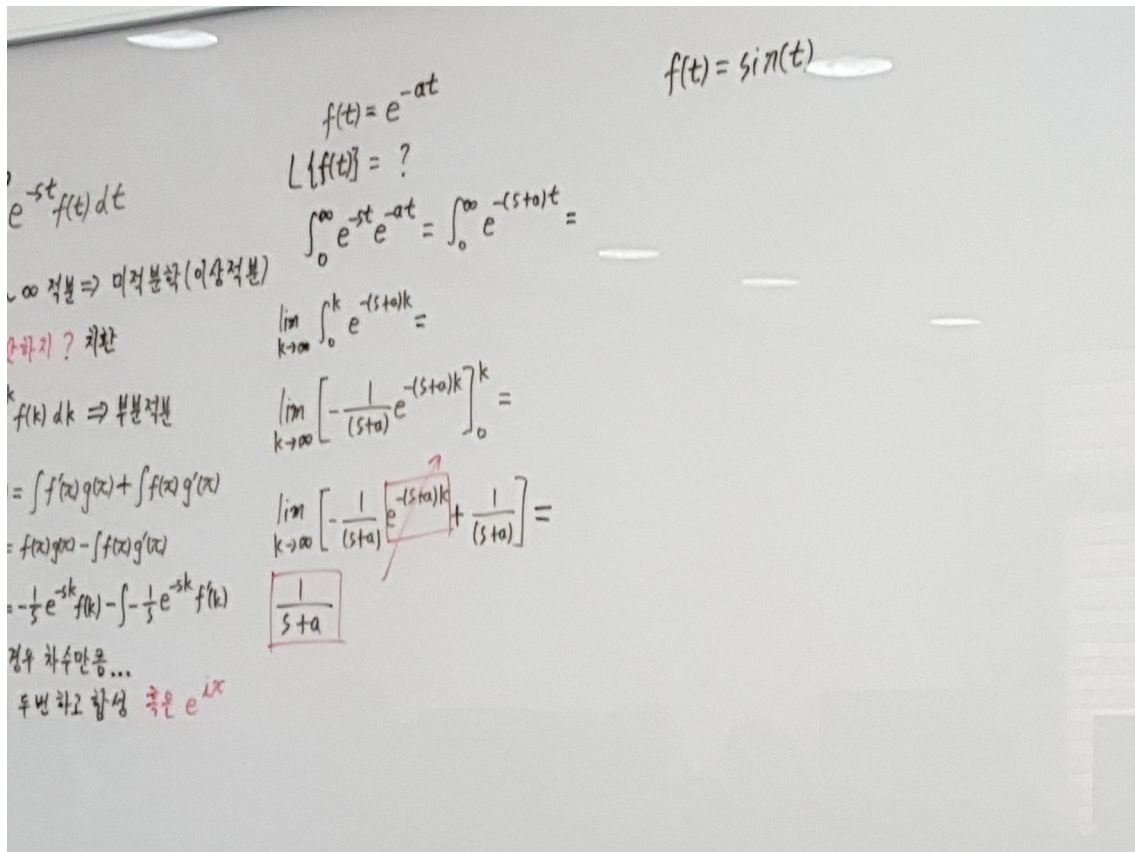 e^{-st} f(t) dt
∞ 적분 ⇒ 미적분학(이상적분)
하지? 치환
f(k) dk ⇒ 부분적분
= ∫f'(x)g(x) + ∫f(x)g'(x)
= f(x)g(x) - ∫f(x)g'(x)
= -\frac{1}{s} e^{-sk} f(k) - ∫ -\frac{1}{s} e^{-sk} f'(k)
경우 차수만큼...
두번 하고 합성 혹은 e^{ix}
f(t) = e^{-at}
L{f(t)} = ?
∫_0^∞ e^{-st} e^{-at} = ∫_0^∞ e^{-(s+a)t} =
lim_{k→∞} ∫_0^k e^{-(s+a)k} =
lim_{k→∞} [-\frac{1}{(s+a)} e^{-(s+a)k}]_0^k =
lim_{k→∞} [-\frac{1}{(s+a)} e^{-(s+a)k} + \frac{1}{(s+a)}] =
\frac{1}{s+a}
f(t) = sin(t)